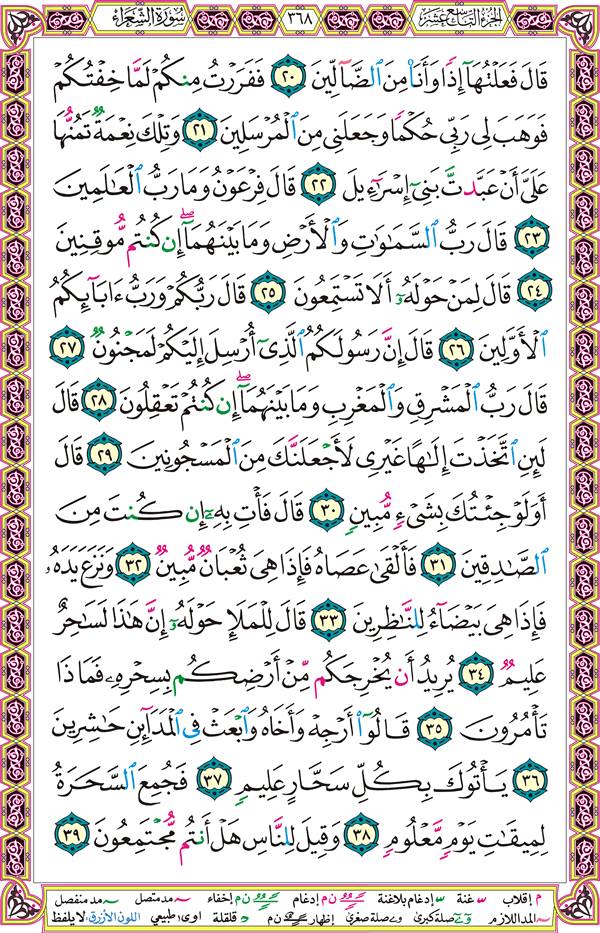 الجزء التاسع عشر ٣٦٨ سورة الشعراء
قَالَ فَعَلْتُهَآ إِذٗا وَأَنَا۠ مِنَ ٱلضَّآلِّينَ ٢٠ فَفَرَرۡتُ مِنكُمۡ لَمَّا خِفۡتُكُمۡ
فَوَهَبَ لِي رَبِّي حُكۡمٗا وَجَعَلَنِي مِنَ ٱلۡمُرۡسَلِينَ ٢١ وَتِلۡكَ نِعۡمَةٞ تَمُنُّهَا
عَلَيَّ أَنۡ عَبَّدتَّ بَنِيٓ إِسۡرَـٰٓءِيلَ ٢٢ قَالَ فِرۡعَوۡنُ وَمَا رَبُّ ٱلۡعَٰلَمِينَ
٢٣ قَالَ رَبُّ ٱلسَّمَٰوَٰتِ وَٱلۡأَرۡضِ وَمَا بَيۡنَهُمَآۖ إِن كُنتُم مُّوقِنِينَ
٢٤ قَالَ لِمَنۡ حَوۡلَهُۥٓ أَلَا تَسۡتَمِعُونَ ٢٥ قَالَ رَبُّكُمۡ وَرَبُّ ءَابَآئِكُمُ
ٱلۡأَوَّلِينَ ٢٦ قَالَ إِنَّ رَسُولَكُمُ ٱلَّذِيٓ أُرۡسِلَ إِلَيۡكُمۡ لَمَجۡنُونٞ ٢٧
قَالَ رَبُّ ٱلۡمَشۡرِقِ وَٱلۡمَغۡرِبِ وَمَا بَيۡنَهُمَآۖ إِن كُنتُمۡ تَعۡقِلُونَ ٢٨ قَالَ
لَئِنِ ٱتَّخَذۡتَ إِلَٰهًا غَيۡرِي لَأَجۡعَلَنَّكَ مِنَ ٱلۡمَسۡجُونِينَ ٢٩ قَالَ
أَوَلَوۡ جِئۡتُكَ بِشَيۡءٖ مُّبِينٖ ٣٠ قَالَ فَأۡتِ بِهِۦٓ إِن كُنتَ مِنَ
ٱلصَّٰدِقِينَ ٣١ فَأَلۡقَىٰ عَصَاهُ فَإِذَا هِيَ ثُعۡبَانٞ مُّبِينٞ ٣٢ وَنَزَعَ يَدَهُۥ
فَإِذَا هِيَ بَيۡضَآءُ لِلنَّٰظِرِينَ ٣٣ قَالَ لِلۡمَلَإِ حَوۡلَهُۥٓ إِنَّ هَٰذَا لَسَٰحِرٌ
عَلِيمٞ ٣٤ يُرِيدُ أَن يُخۡرِجَكُم مِّنۡ أَرۡضِكُم بِسِحۡرِهِۦ فَمَاذَا
تَأۡمُرُونَ ٣٥ قَالُوٓاْ أَرۡجِهۡ وَأَخَاهُ وَٱبۡعَثۡ فِي ٱلۡمَدَآئِنِ حَٰشِرِينَ
٣٦ يَأۡتُوكَ بِكُلِّ سَحَّارٍ عَلِيمٖ ٣٧ فَجُمِعَ ٱلسَّحَرَةُ
لِمِيقَٰتِ يَوۡمٖ مَّعۡلُومٖ ٣٨ وَقِيلَ لِلنَّاسِ هَلۡ أَنتُم مُّجۡتَمِعُونَ ٣٩
م إقلاب غنة إدغام بلاغنة ن م إدغام ن م إخفاء مد متصل مد منفصل
المد اللازم صلة كبرى صلة صغرى إظهار ن م قلقلة اوى طبيعي اللون الأزرق: لا يلفظ